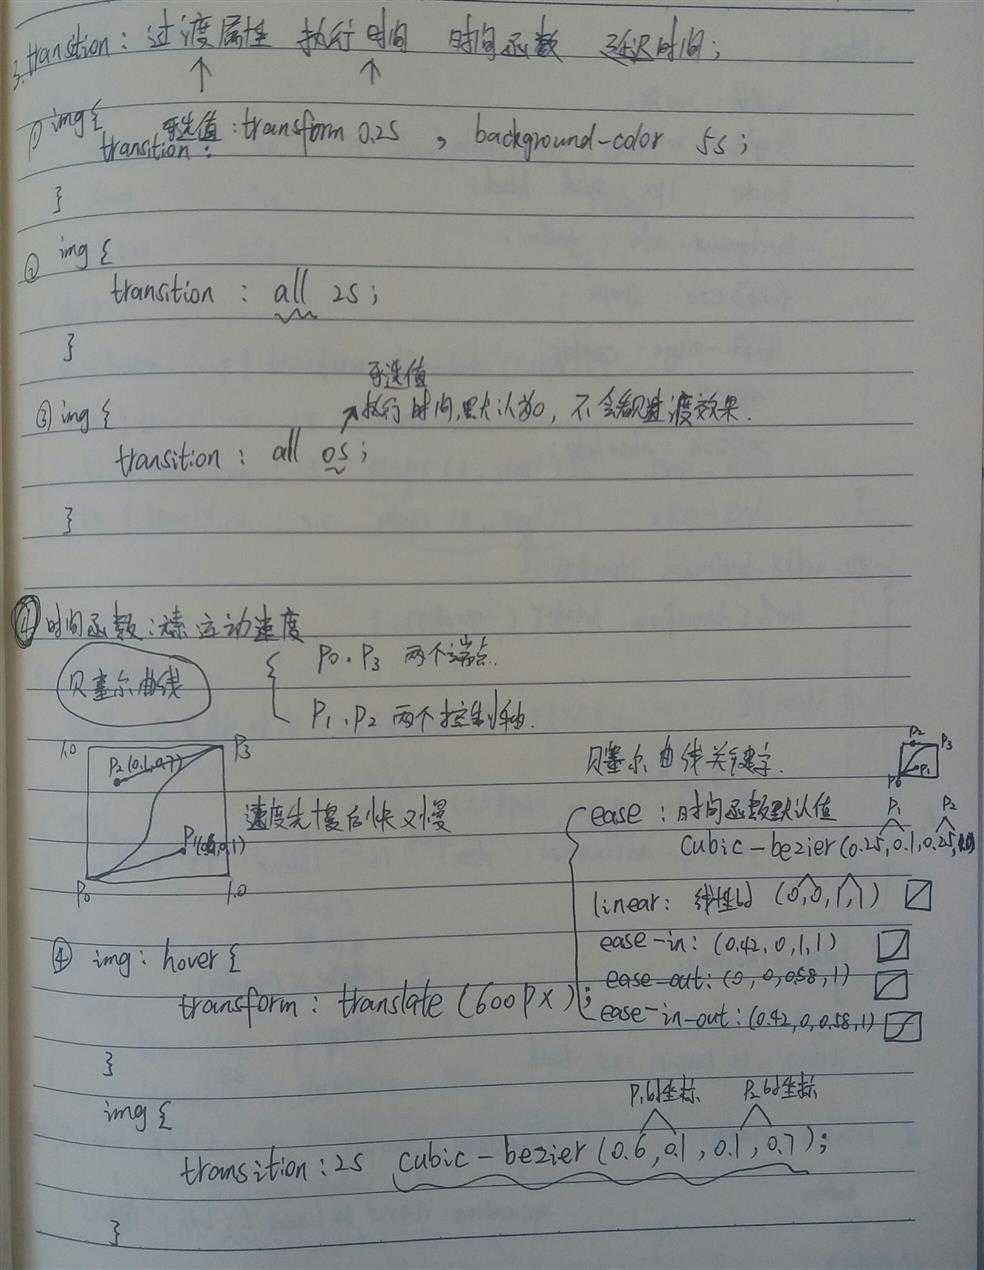 3. transition：过渡属性 执行时间 时间函数 延迟时间；
① img {
可选值
transition：transform 0.2s , background-color 5s；
}
② img {
transition：all 2s；
}
可选值
③ img { 执行时间,默认为0，不会触发过渡效果.
transition：all 0s；
}
④ 时间函数： 运动速度
贝塞尔曲线
P0、P3 两个端点.
P1、P2 两个控制轴.
1.0 P3
P2(0.1,0.7)
P1(0.6,0.1)
P0 1.0
速度先慢后快又慢
贝塞尔曲线关键字.
P2 P3
P0 P1
P1 P2
ease：时间函数默认值
cubic-bezier(0.25,0.1,0.25,1.0)
linear：线性的 (0,0,1,1)
ease-in：(0.42,0,1,1)
ease-out：(0,0,0.58,1)
ease-in-out：(0.42,0,0.58,1)
④ img：hover {
transform：translate(600px)；
}
img {
P1的坐标 P2的坐标
transition：2s cubic-bezier(0.6,0.1,0.1,0.7)；
}